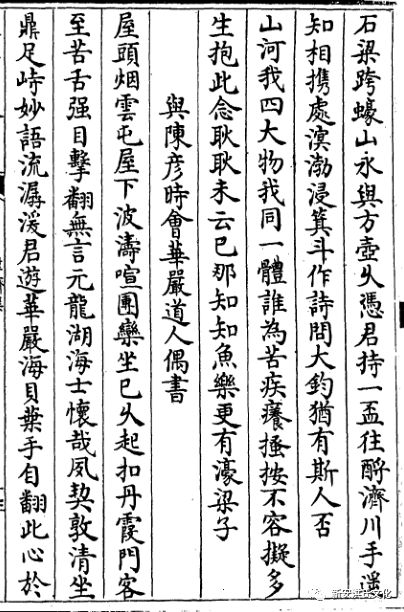 石梁跨蠔山永與方壺乆憑君持一盃往酹濟川手遥
知相携處溟渤浸箕斗作詩問大鈞猶有斯人否
山河我四大物我同一體誰為苦疾癢搔按不容擬多
生抱此念耿耿未云已那知知魚樂更有濠梁子
與陳彦時會華嚴道人偶書
屋頭烟雲屯屋下波濤喧團欒坐已乆起扣丹霞門客
至苦舌强目擊翻無言元龍湖海士懷哉夙契敦清坐
鼎足峙妙語流潺湲君遊華嚴海貝葉手自翻此心於
新安
文化